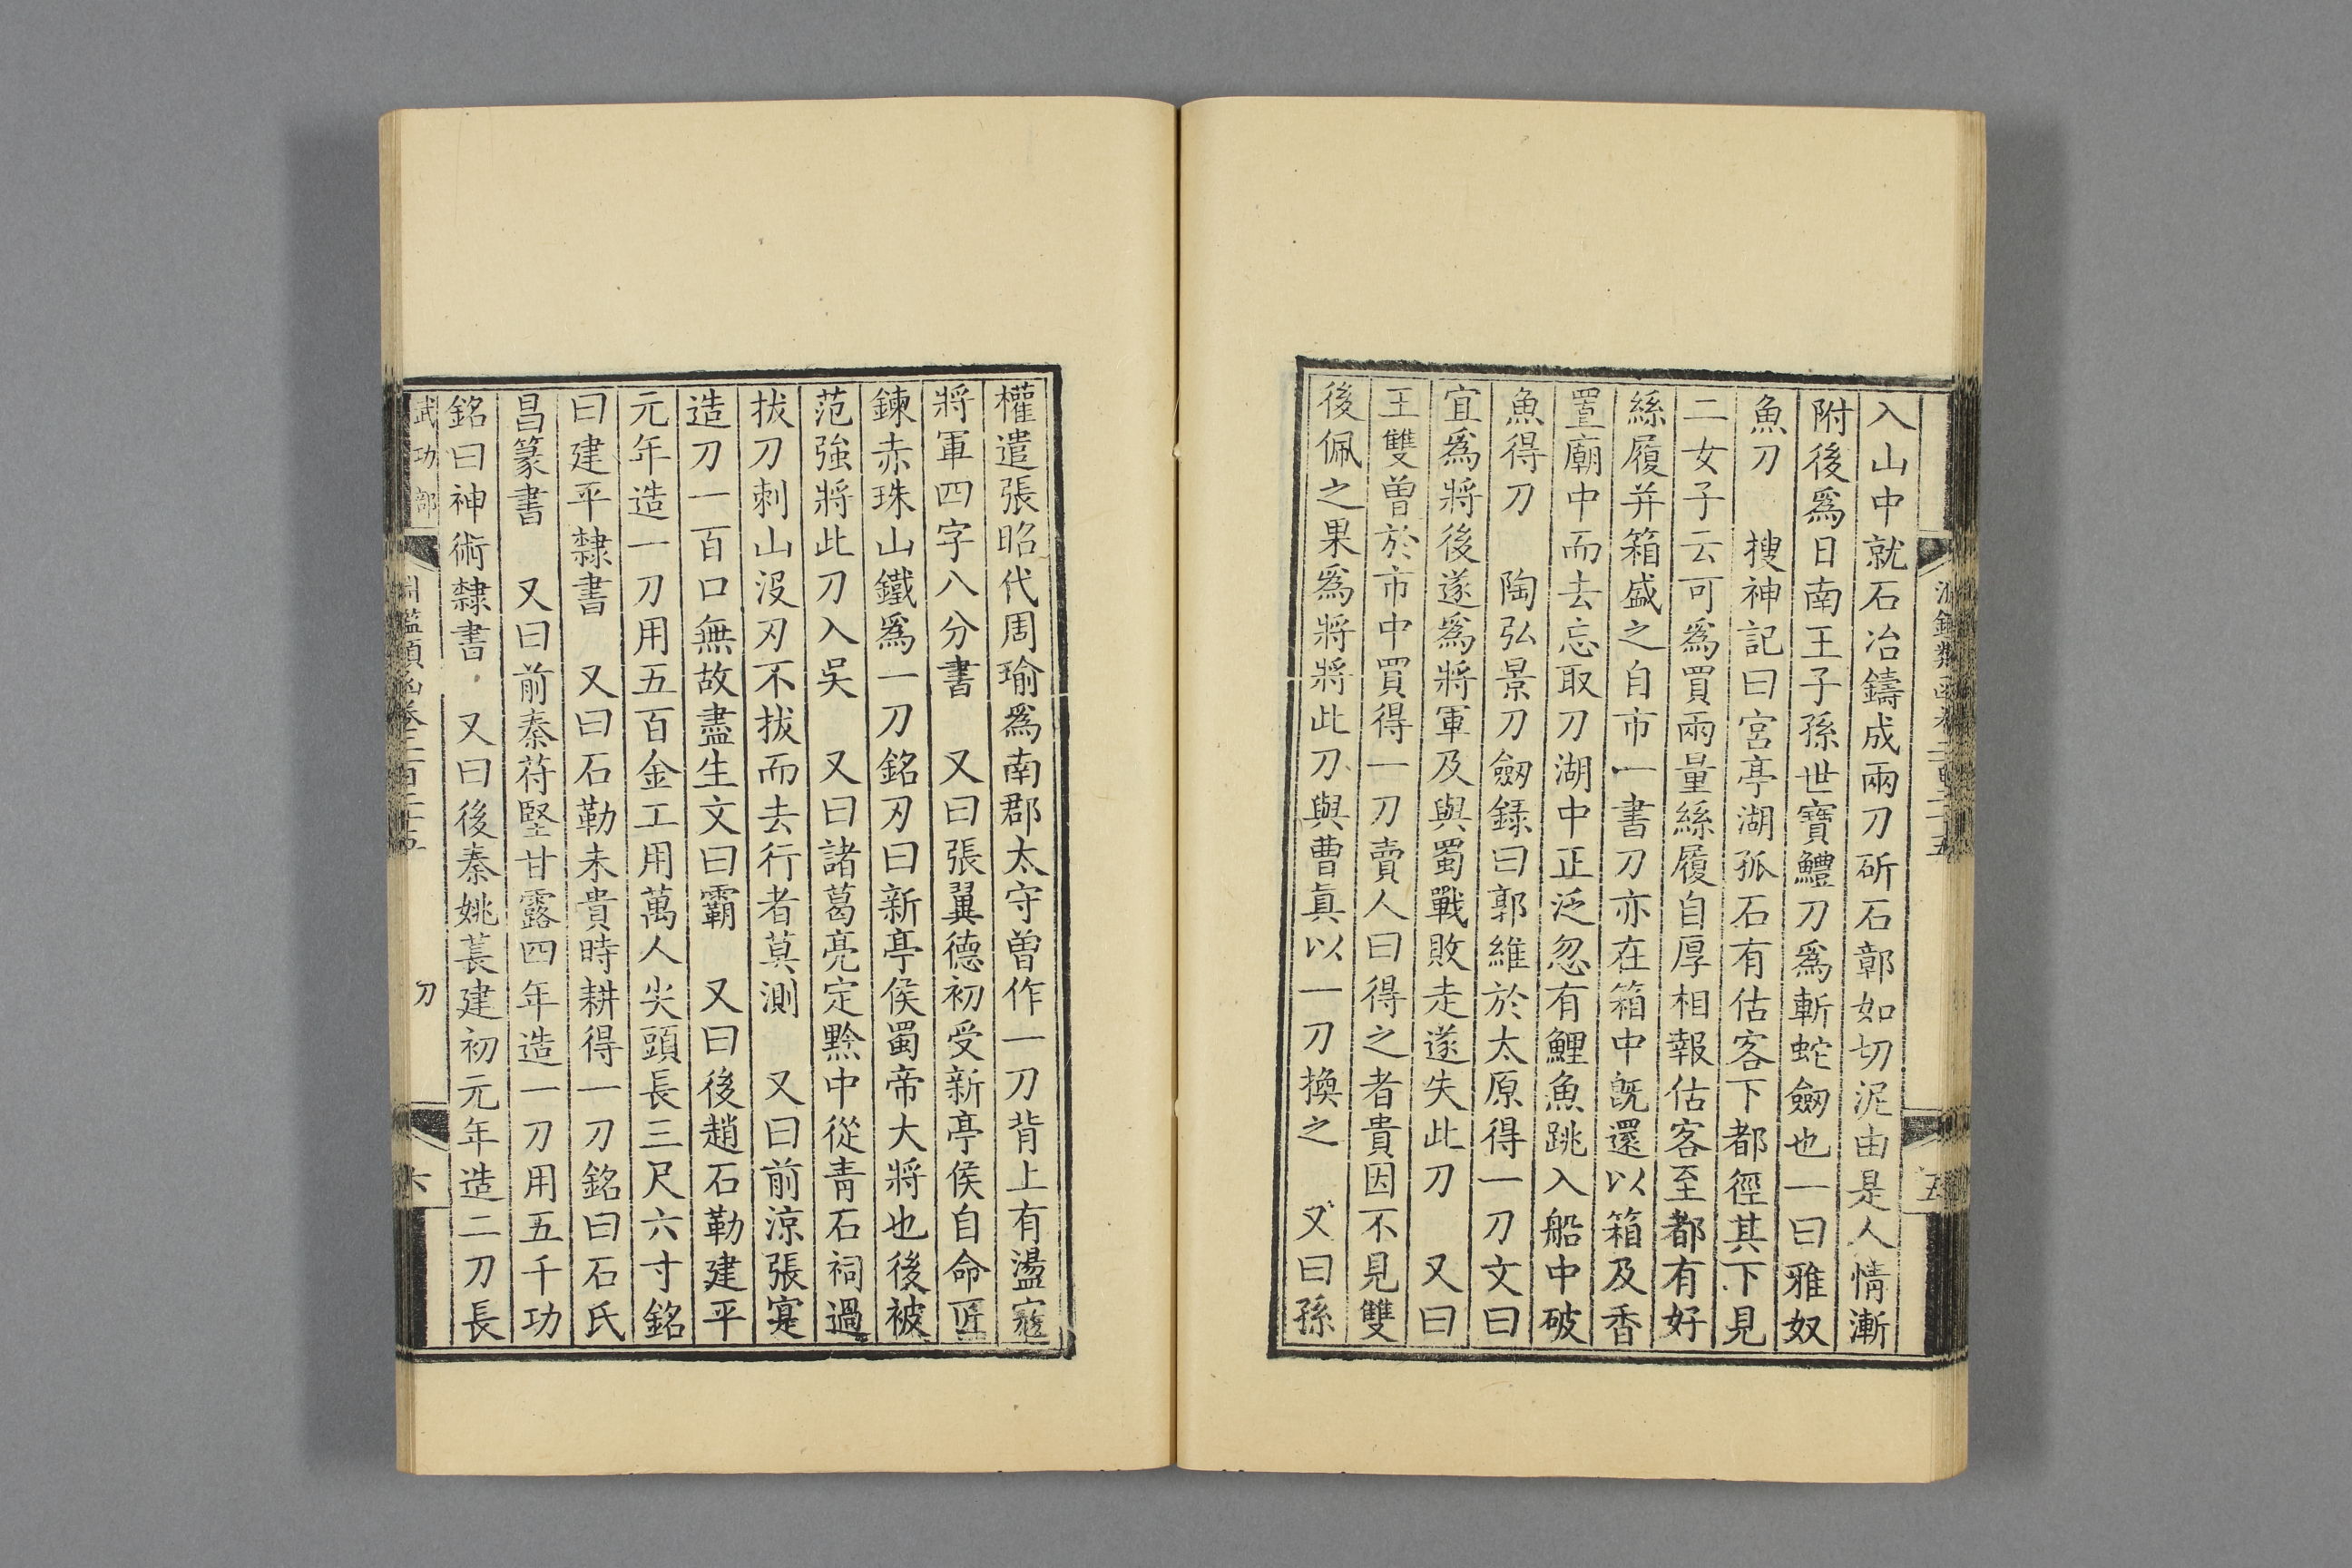 入山中就石冶鑄成兩刀斫石鄣如切泥由是人情漸
附後爲日南王子孫世寶鱧刀爲斬蛇劒也一曰雅奴
魚刀　搜神記曰宮亭湖孤石有估客下都徑其下見
二女子云可爲買兩量絲履自厚相報估客至都有好
絲履并箱盛之自市一書刀亦在箱中旣還以箱及香
置廟中而去忘取刀湖中正泛忽有鯉魚跳入船中破
魚得刀　陶弘景刀劒錄曰郭維於太原得一刀文曰
宜爲將後遂爲將軍及與蜀戰敗走遂失此刀　又曰
王雙曾於市中買得一刀賣人曰得之者貴因不見雙
後佩之果爲將將此刀與曹眞以一刀換之　又曰孫
權遣張昭代周瑜爲南郡太守曾作一刀背上有盪寇
將軍四字八分書　又曰張翼德初受新亭侯自命匠
鍊赤珠山鐵爲一刀銘刃曰新亭侯蜀帝大將也後被
范強將此刀入吳　又曰諸葛亮定黔中從青石祠過
拔刀刺山沒刃不拔而去行者莫測　又曰前涼張寔
造刀一百口無故盡生文曰霸　又曰後趙石勒建平
元年造一刀用五百金工用萬人尖頭長三尺六寸銘
曰建平隸書　又曰石勒未貴時耕得一刀銘曰石氏
昌篆書　又曰前秦苻堅甘露四年造一刀用五千功
銘曰神術隸書　又曰後秦姚萇建初元年造二刀長
武功部　淵鑑類函卷二百二十五　刀　六